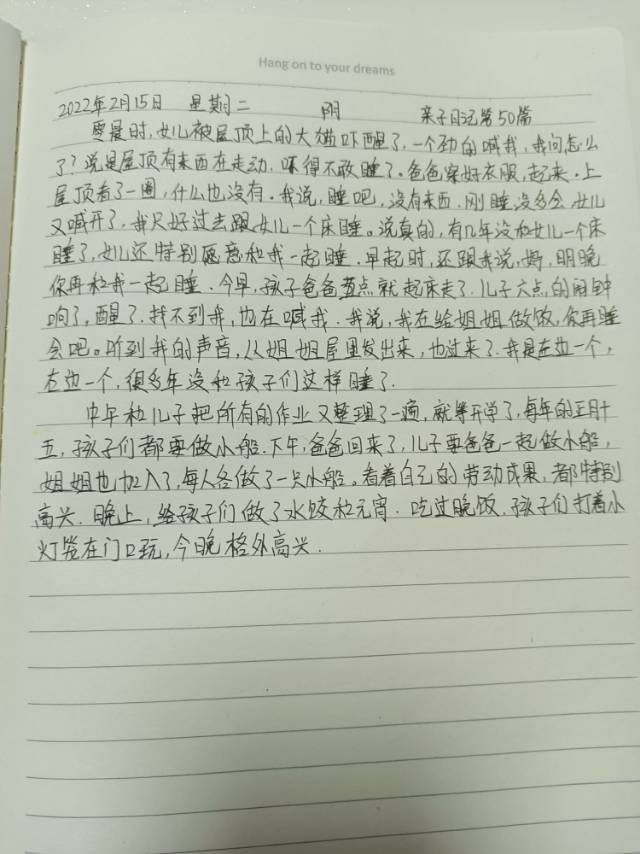 Hang on to your dreams
2022年2月15日 星期二 阴 亲子日记第50篇
零晨时,女儿被屋顶上的大猫吓醒了,一个劲的喊我,我问怎么
了?说是屋顶有东西在走动,吓得不敢睡了。爸爸穿好衣服,起来.上
屋顶看了一圈,什么也没有。我说,睡吧,没有东西.刚睡没多会,女儿
又喊开了,我只好过去跟女儿一个床睡。说真的,有几年没和女儿一个床
睡了,女儿还特别愿意和我一起睡.早起时,还跟我说,妈,明晚
你再和我一起睡.今早,孩子爸爸点就起床走了.儿子六点的闹钟
响了,醒了.找不到我,也在喊我.我说,我在给姐姐做饭,你再睡
会吧。听到我的声音,从姐姐屋里发出来,也过来了.我是左边一个,
右边一个,很多年没和孩子们这样睡了.
中午和儿子把所有的作业又整理了一遍,就等开学了,每年的正月十
五,孩子们都要做小船.下午,爸爸回来了,儿子要爸爸一起做小船,
姐姐也加入了,每人各做了一只小船。看着自己的劳动成果,都特别
高兴.晚上,给孩子们做了水饺和元宵.吃过晚饭.孩子们打着小
灯笼在门口玩,今晚格外高兴.